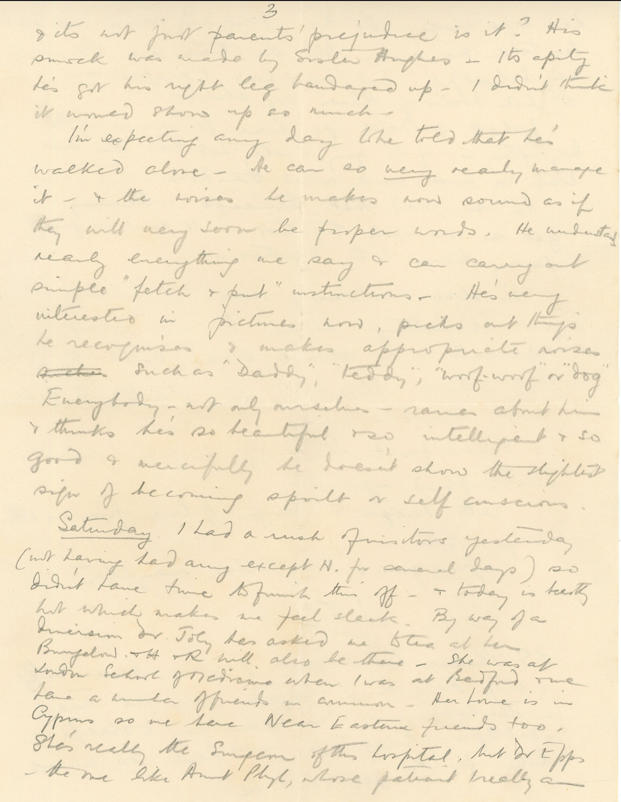 3
& its not just parents' prejudice is it? His
smock was made by Sister Hughes - Its a pity
he's got his right leg bandaged up - I didn't think
it would show up so much -
I'm expecting any day to be told that he's
walked alone - He can so very nearly manage
it - & the noises he makes now sound as if
they will very soon be proper words. He understands
nearly everything we say & can carry out
simple "fetch & put" instructions - He's very
interested in pictures now, picks out things
he recognises & makes appropriate noises
such as "Daddy", "Teddy", "woof-woof" or "dog"
Everybody - not only ourselves - raves about him
& thinks he's so beautiful & so intelligent & so
good & mercifully he doesn't show the slightest
sign of becoming spoilt or self conscious.
Saturday. I had a rush of visitors yesterday
(not having had any except H. for several days) so
didn't have time to finish this off - & today is beastly
hot which makes me feel slack. By way of a
diversion Dr. Toby has asked me to tea at her
Bungalow. & H & R will also be there - She was at
London School of Medicine when I was at Bedford & we
have a number of friends in common - Her home is in
Cyprus so we have Near Eastern friends too.
She's really the Surgeon of this hospital, but Dr Epps
- the one like Aunt Phyl, whose patient I really am